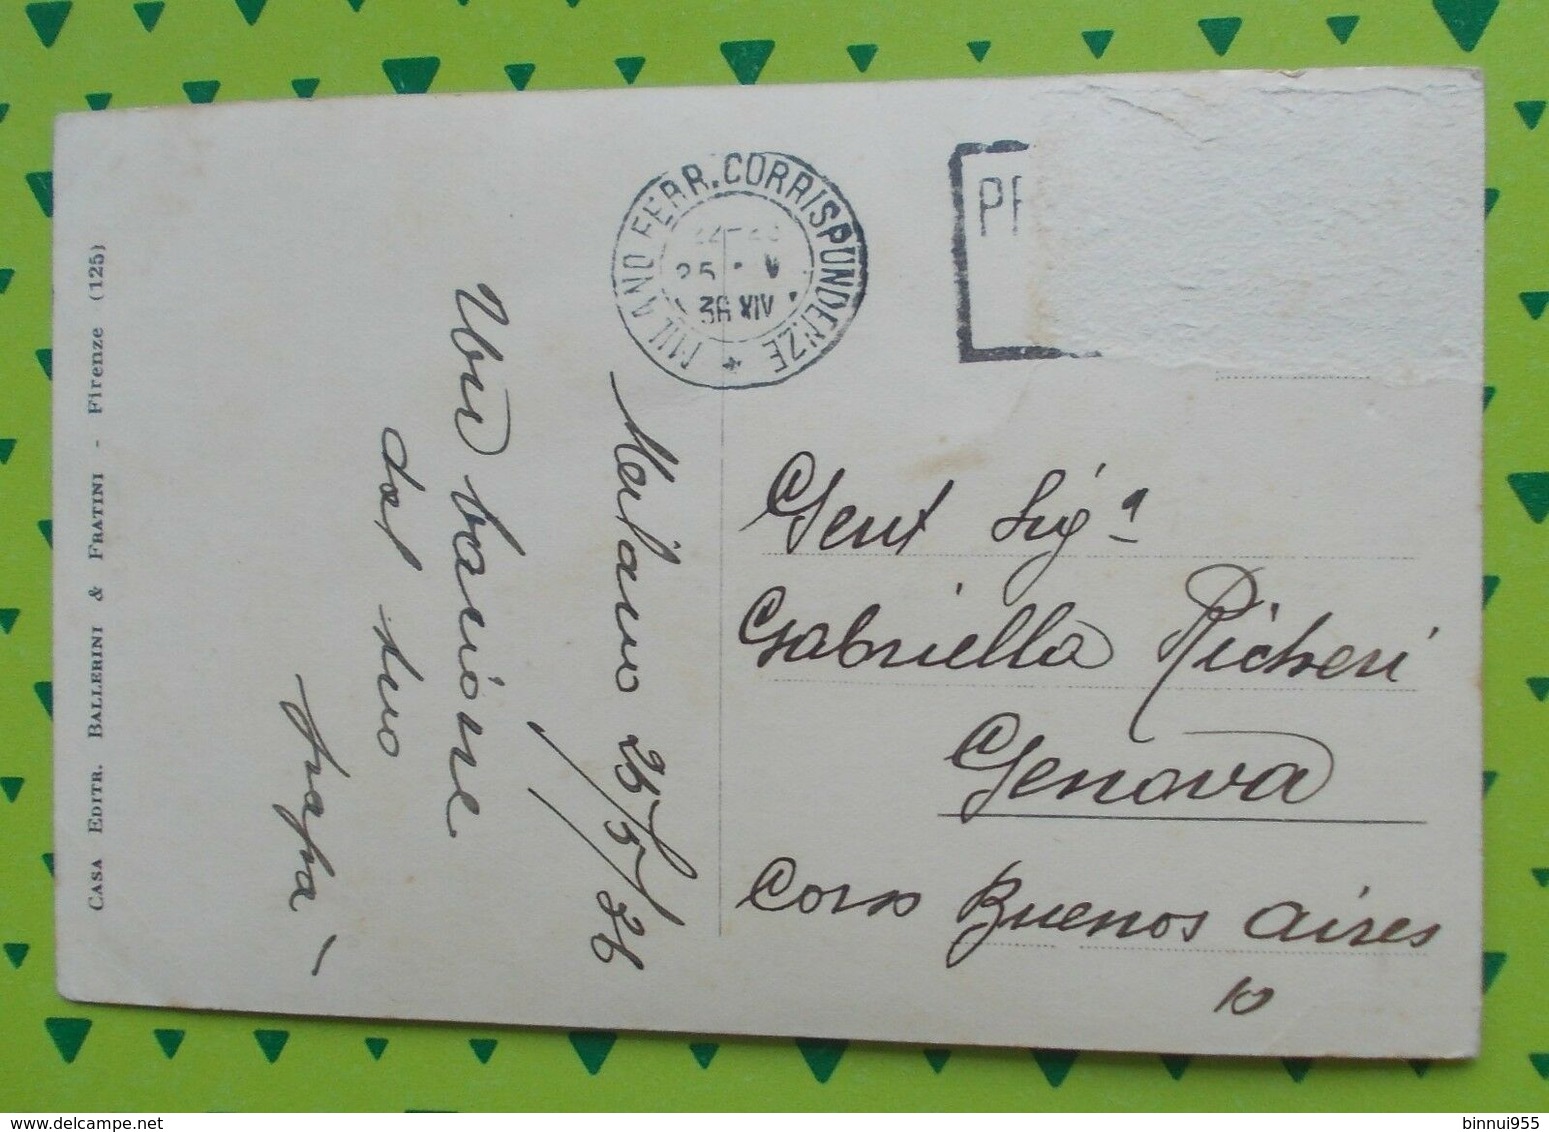 CASA EDITR. BALLERINI & FRATINI - Firenze (125)
Milano 25/5/36
bacione
dal tuo
MILANO FERR. CORRISPONDENZE
25 V
36 XIV
Gent Sigª
Gabriella Richeri
Genova
Corso Buenos Aires
10
binnui955